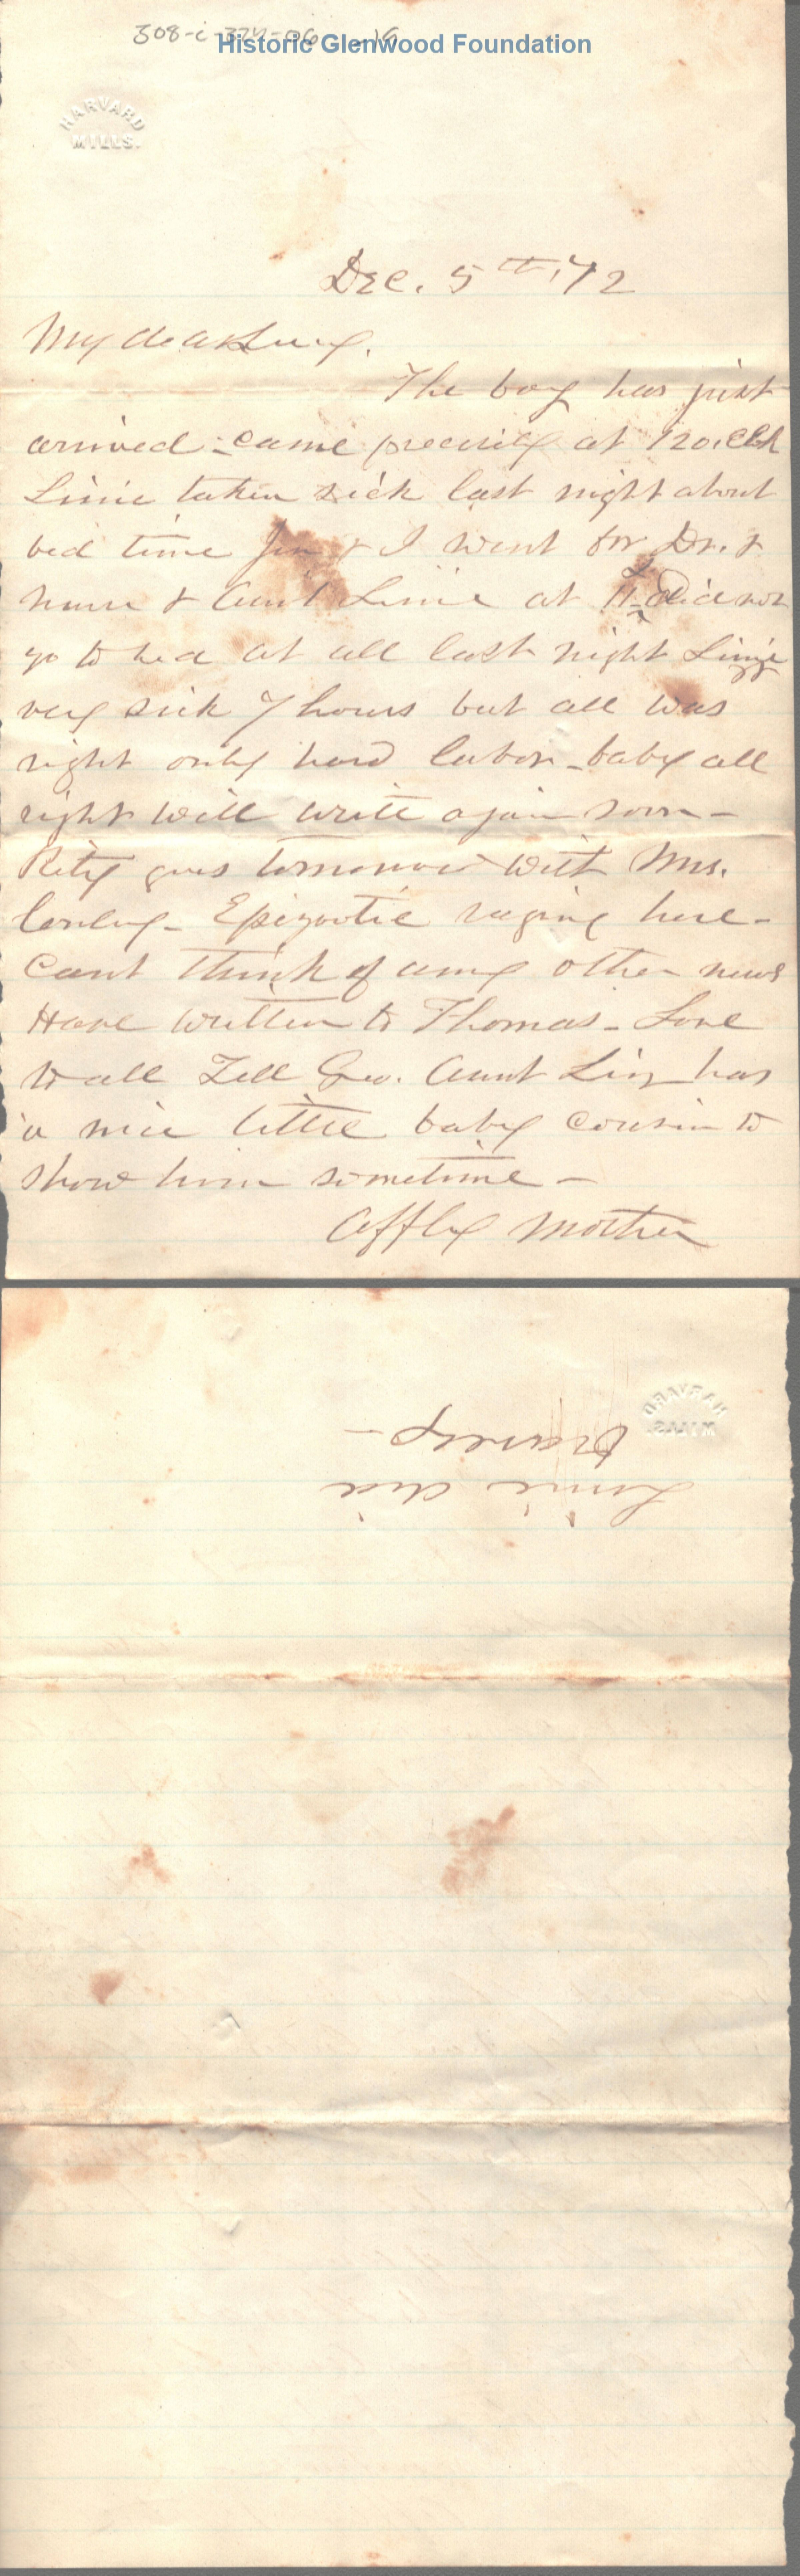 308-c-374-06
Historic Glenwood Foundation
HARVARD
MILLS.
Dec. 5th, 72
My dear Lucy.
The boy has just
arrived - came precisely at 12 o.clck
Lizzie taken sick last night about
bed time Jim & I went for Dr. &
nurse & Aunt Lizzie at 11 Did not
go to bed at all last night Lizzie
very sick 7 hours but all was
right only hard labor - baby all
right will write again soon -
Kity goes tomorrow with Mrs.
Conley - Epizootic raging here -
Cant think of any other news
Have written to Thomas - Love
to all Tell Geo. Aunt Liz has
a nice little baby cousin to
show him sometime -
Affly Mother
HARVARD
MILLS.
Lizzie did
bravely -